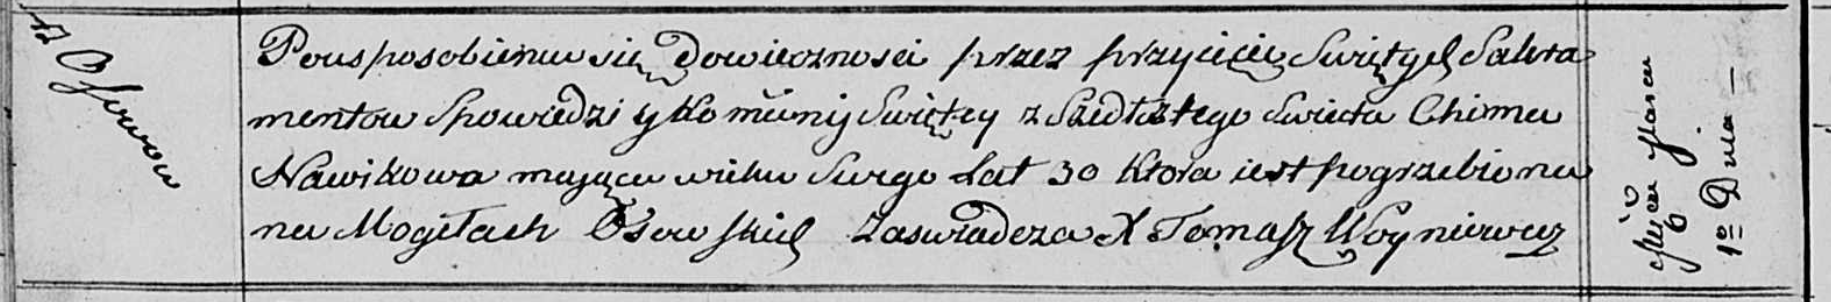 z Osowa
Pousposobieniu się Dowiecznosci przez przyięcie Swiętych Sakra
mentow Spowiedzi y Komunij Swiętey z Szedł z tego Swiata Chima
Nawikowa maiąca wieku Swego Lat 30 Ktora iest pogrzebiona
na Mogiłach Osowskich Zaswiadcza X Tomasz Woyniewicz
Miesca Marca
1º Dnia —